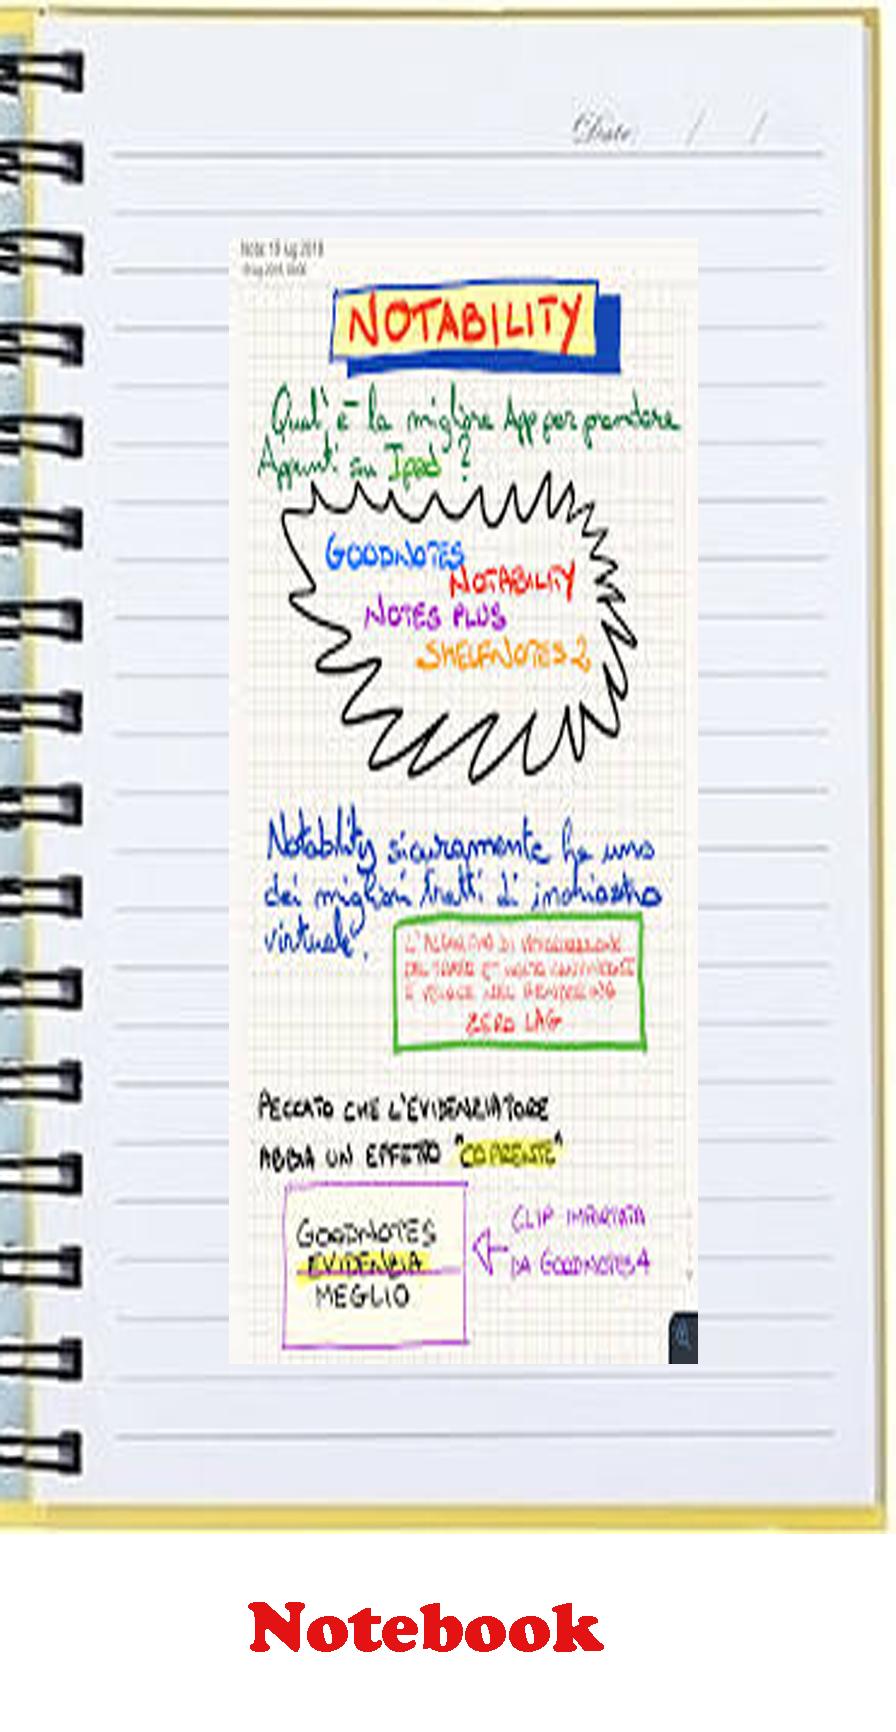 Date: / /
Note 19 lug 2018
NOTABILITY
Qual'è la migliore App per prendere
Appunti su Ipad ?
GOODNOTES
NOTABILITY
NOTES PLUS
SHELFNOTES 2
Notability sicuramente ha uno
dei migliori tratti di inchiostro
virtuale.
L'ALGORITMO DI
DEL TRATTO E' MOLTO CONVINCENTE
E VELOCE NEL RENDERING
ZERO LAG
PECCATO CHE L'EVIDENZIATORE
ABBIA UN EFFETTO "COPRENTE"
GOODNOTES
EVIDENZIA
MEGLIO
CLIP IMPORTATA
DA GOODNOTES 4
Notebook